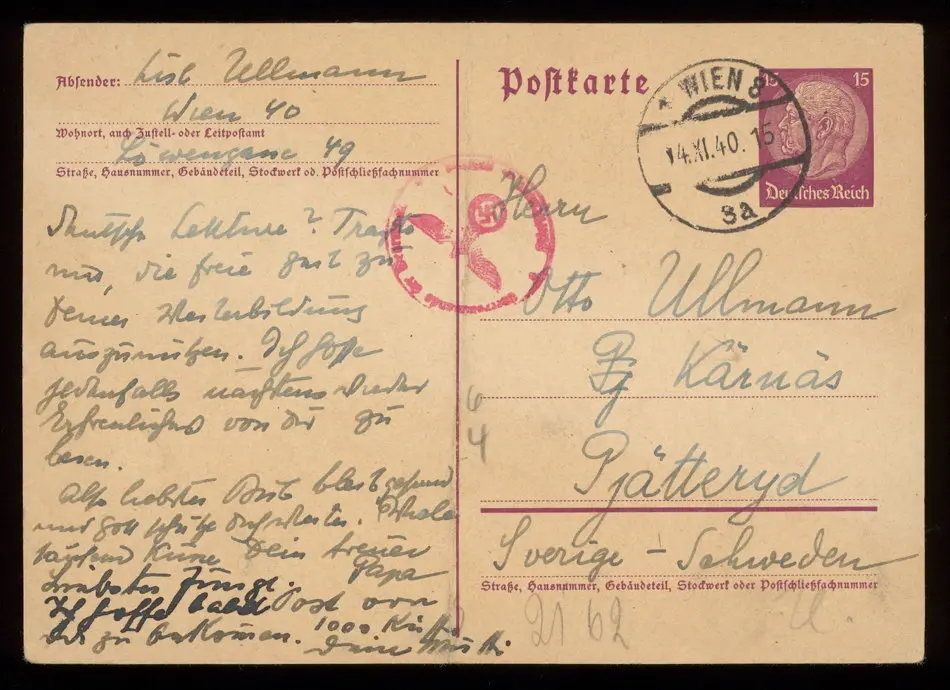 Absender: Lisl Ullmann
Wien 40
Wohnort, auch Zustell- oder Leitpostamt
Löwengasse 49
Straße, Hausnummer, Gebäudeteil, Stockwerk od. Postschließfachnummer
Deutsche Lektüre? Trachte
nur, die freie Zeit zu
Deiner Weiterbildung
auszunützen. Ich hoffe
jedenfalls nächstens wieder
Erfreuliches von Dir zu
lesen.
Also liebster Bub bleib gesund
und Gott schütze Dich weiter.
tausend Küsse Dein treuer
Papa
Liebster Junge.
Ich hoffe bald Post von
Dir zu bekommen. 1000
Deine Mutti
Postkarte
WIEN 8
14.XI.40. 15
8a
15 15
Deutsches Reich
Herrn
Otto Ullmann
Kärnäs
Pjätteryd
Sverige - Schweden
Straße, Hausnummer, Gebäudeteil, Stockwerk oder Postschließfachnummer
6
4
21 62